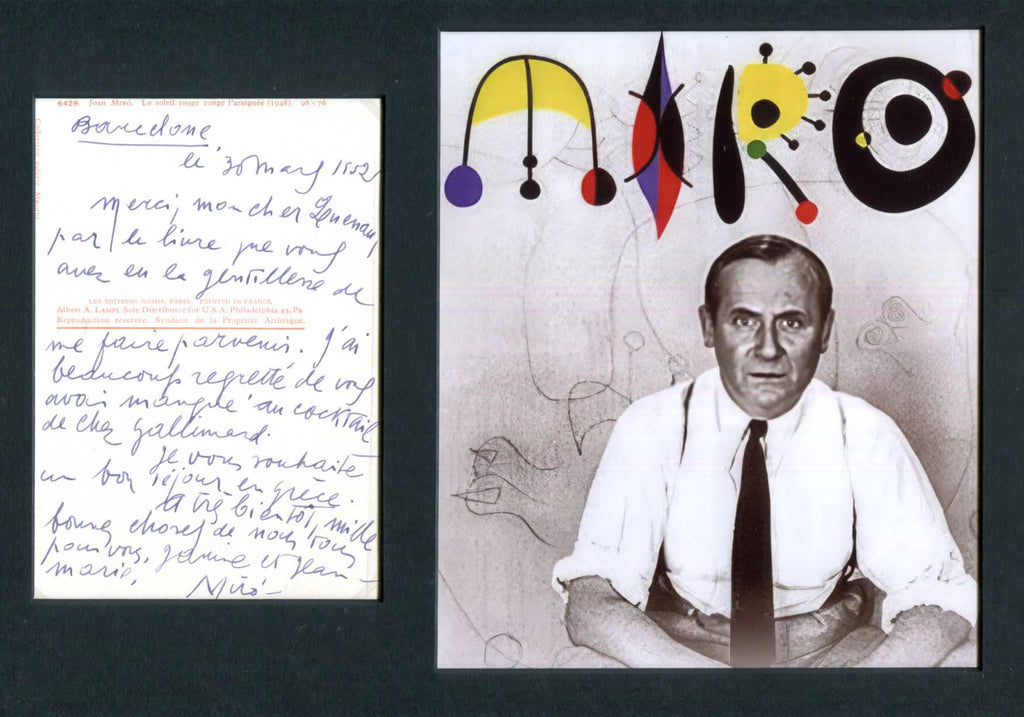 6429. Joan Miró. Le soleil rouge ronge l'araignée (1948). 96×76
Barcelone
le 30 mars 1952
merci, mon cher
par le livre que vous
avez eu la gentillesse de
LES ÉDITIONS NOMIS, PARIS. PRINTED IN FRANCE.
Albert A. LAMPL Sole Distributor for U.S.A. Philadelphia 43, Pa.
Reproduction réservée. Syndicat de la Propriété Artistique.
me faire parvenir. J'ai
beaucoup regretté de vous
avoir manqué au cocktail
de chez gallimard.
Je vous souhaite
un bon séjour en grèce.
A très bientôt, mille
bonnes choses de nous tous
pour vous, Janine et Jean-
marie.
Miró-
MIRO